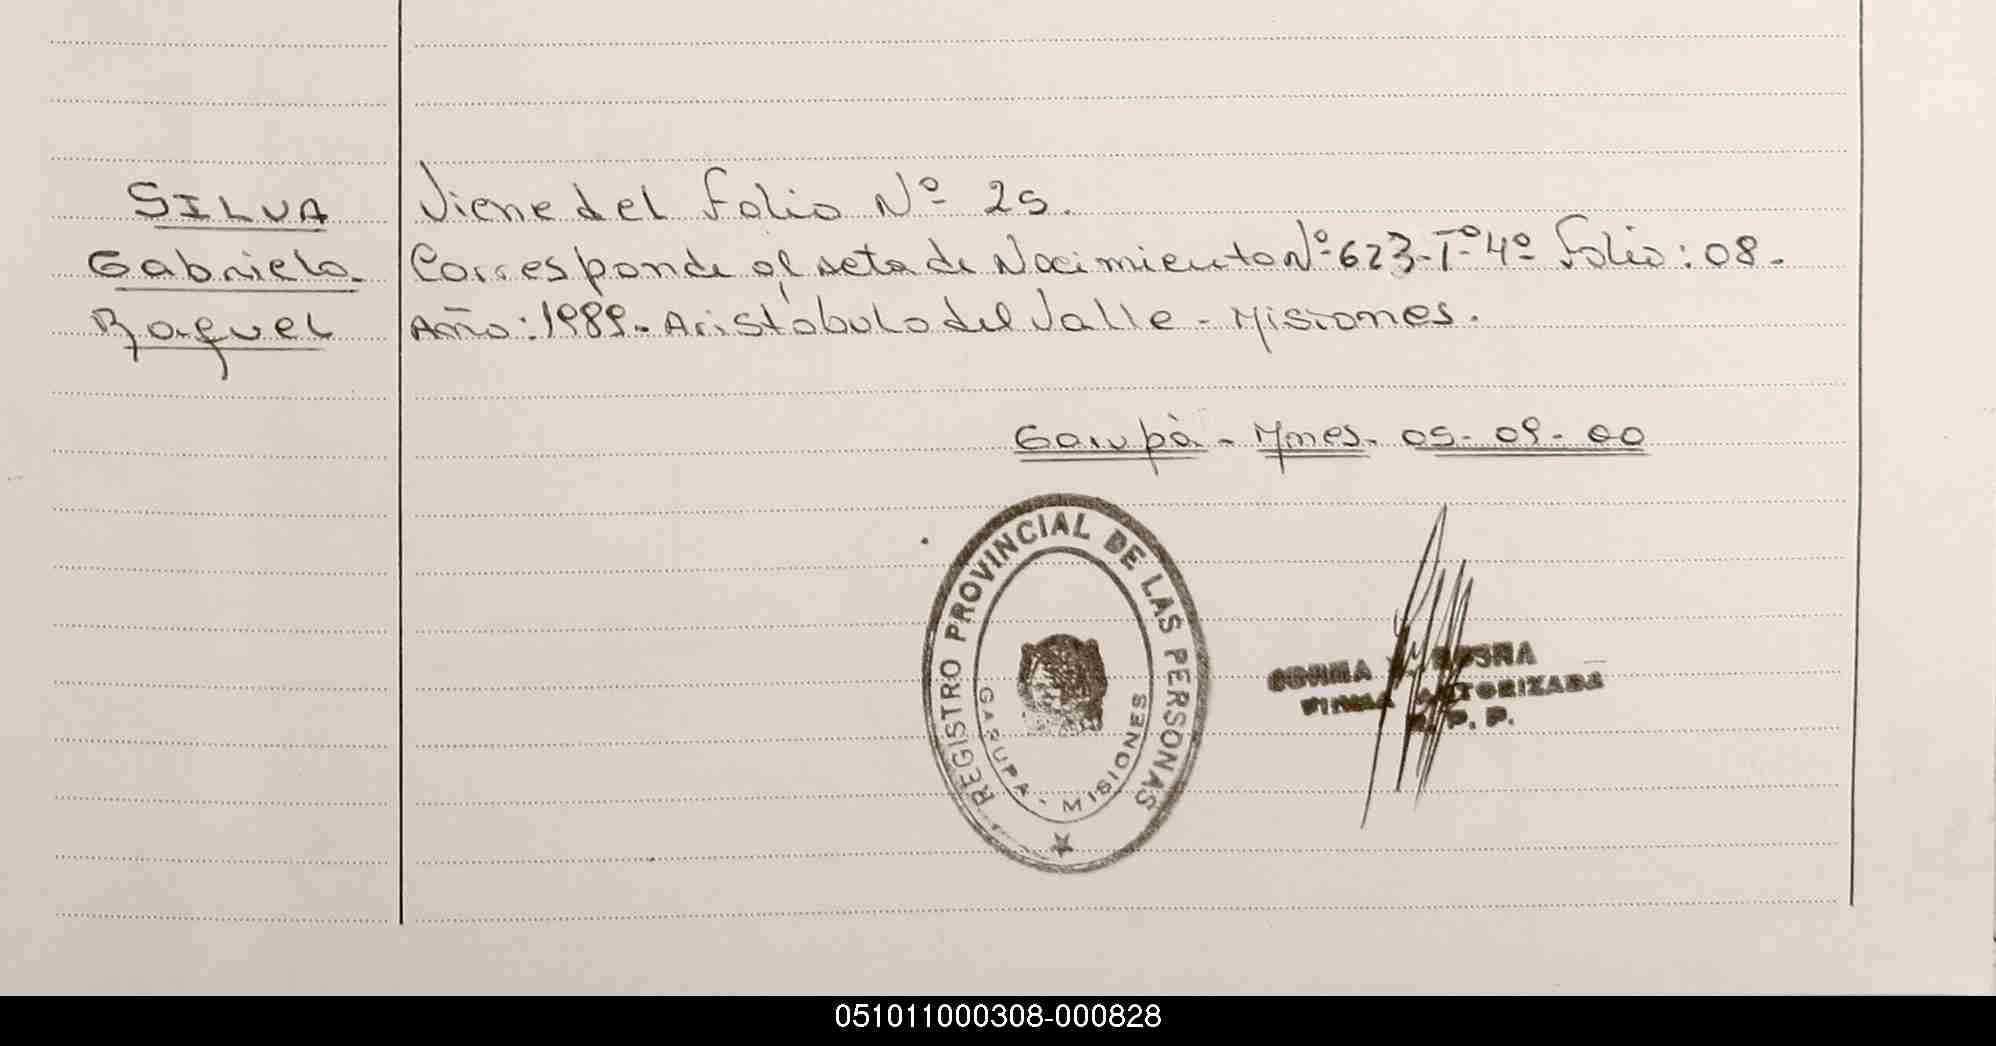 SILVA
Gabriela
Raquel
Viene del Folio Nº 25.
Corresponde al acta de Nacimiento Nº 623-Tº-4º Folio: 08.
Año: 1989. Aristóbulo del Valle - Misiones.
Garupà - Mnes. 05-09-00
REGISTRO PROVINCIAL DE LAS PERSONAS
GARUPA - MISIONES
FIRMA AUTORIZADA
R. P. P.
051011000308-000828